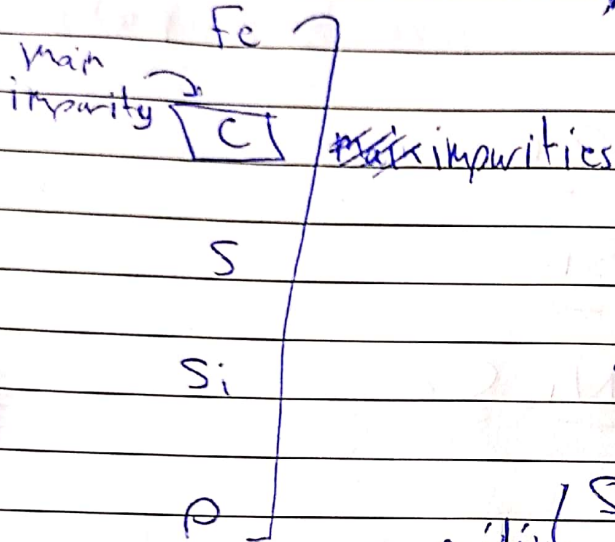 Fe
Main
impurity
C
impurities
S
Si
P